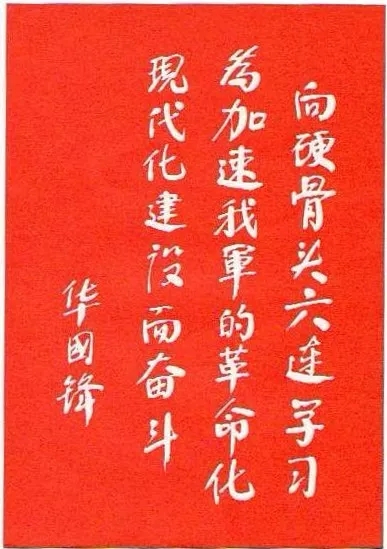 向硬骨头六连学习
为加速我軍的革命化
現代化建设而奋斗
华國锋